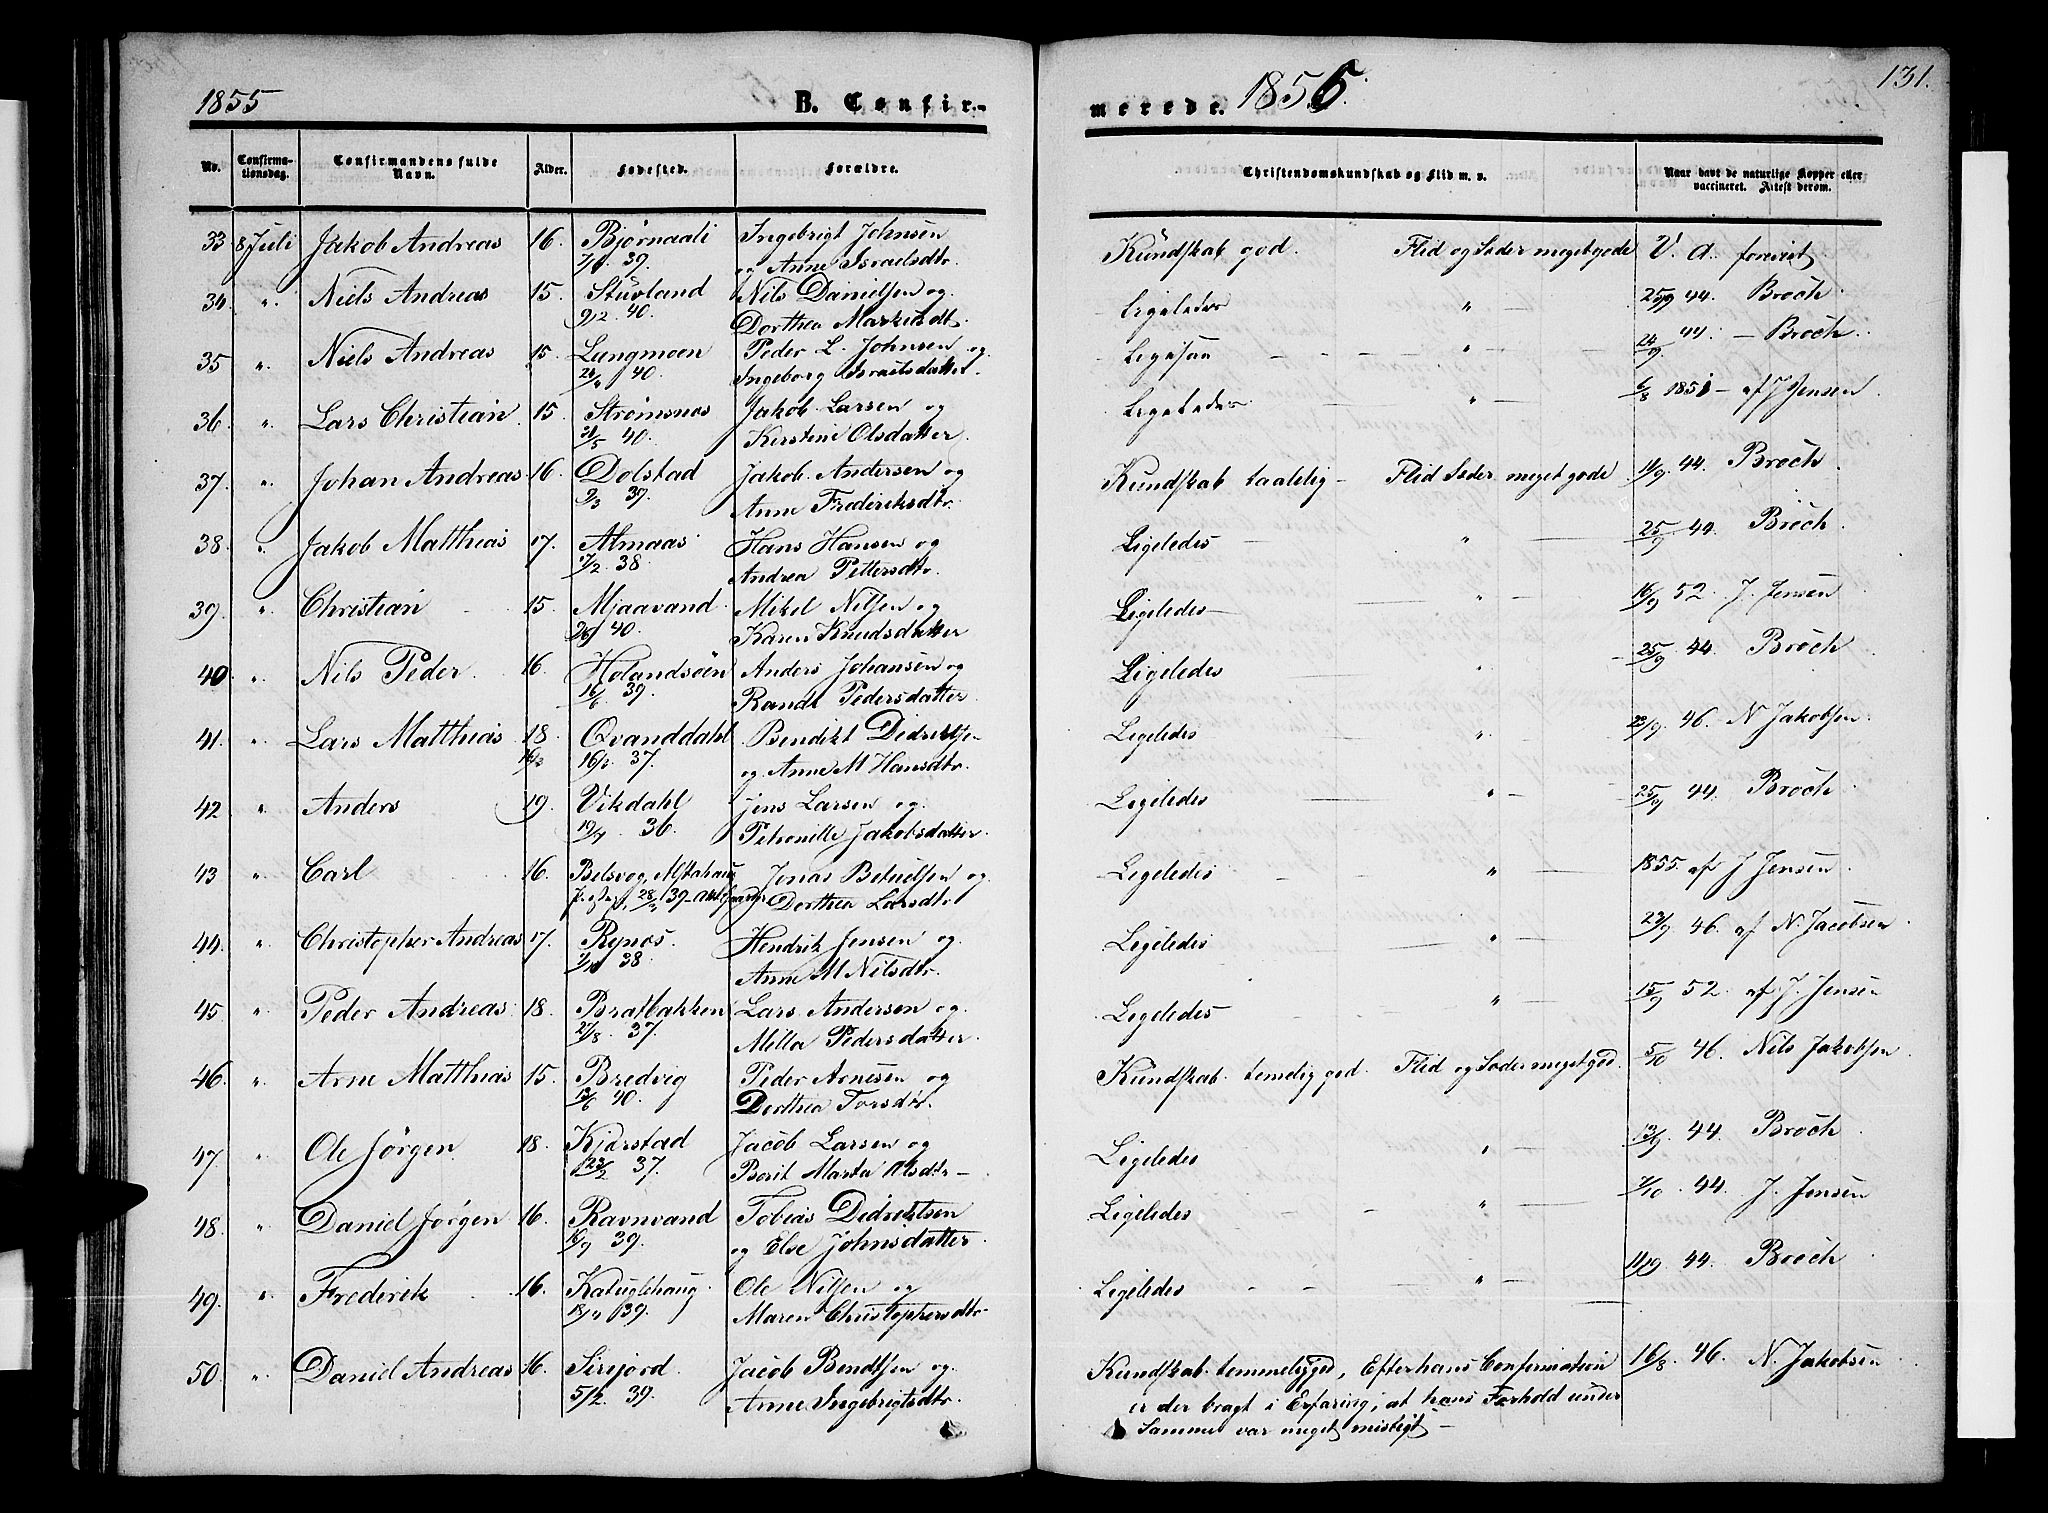 1855 B. Confir-
merede. 1855. 131.
No. Confirma-tionsdag. Confirmandens fulde Navn. Alder. Fødested. Forældre. Christendomskundskab og Flid m. v. Naar havt de naturlige Kopper eller vaccineret. Attest derom.
33 8 Juli Jakob Andreas 16. Bjørnaali Ingebrigt Johnsen Kundskab god. Flid og Sæder meget gode V. a. forevist
39. og Anne Israelsdtr.
34. " Niels Andreas 15. Stuvland Nils Danielsen og Ligeledes " 25/9 44. Broch.
9/2 40. Dorthea Markusdt.
35 " Niels Andreas 15. Langmoen Peder L. Johnsen og Ligesaa " 24/9 44. – Broch.
40. Ingeborg Israelsdatter.
36 " Lars Christian 15. Strømsnos Jakob Larsen og Ligeledes " 6/8 1851 – af J Jensen
21/5 40. Kirstine Olsdatter.
37. " Johan Andreas 16. Dolstad Jakob Andersen og Kundskab taalelig – Flid Sæder meget gode 11/9 44. Broch
9/3 39. Anne Frederiksdtr.
38. " Jakob Matthias 17. Almaas Hans Hansen og Ligeledes " 25/9 44. Broch.
7/2 38. Andrea Pettersdtr.
39. " Christian 15. Mjaavand Mikel Nilsen og Ligeledes " 16/9 52. J. Jensen
40. Karen Knudsdatter
40. " Nils Peder 16 Holandsøen Anders Johansen og Ligeledes " 25/9 44. Broch
16/6 39. Randi Pedersdatter
41. " Lars Matthias 18 Qvanddahl Bendikt Didriksen Ligeledes " 23/9 46. N Jakobsen.
37. og Anne M Hansdtr.
42 " Anders 19. Vikdahl Jens Larsen og Ligeledes " 25/9 44. Broch
36. Petronille Jakobsdatter.
43 " Carl 16. Belsvog, Alstahaug Jonas Betuelsen og Ligeledes " 1855. af J Jensen
39 Dorthea Larsdtr
44. " Christopher Andreas 17. Rynos. Hendrik Jensen og Ligeledes " 23/9 46. af N. Jacobsen
38. Anne M Nilsdtr.
45 " Peder Andreas 18. Bratbakken Lars Andersen og Ligeledes " 15/9 52. af J. Jensen
27/8 37. Milla Pedersdatter
46. " Arne Matthias 15. Bredvig Peder Arnesen og Kundskab temelig god. Flid og Sæder meget god. 5/10 46. Nils Jakobsen
40. Dorthea Torsdtr.
47 " Ole Jørgen 18. Kjærstad Jacob Larsen og Ligeledes " 13/9 44. Broch.
37. Berit Marta Olsdtr –
48. " Daniel Jørgen 16. Ravnvand Tobias Didriktsen Ligeledes " 7/10. 44. J. Jensen
16/9 39. og Else Johnsdatter.
49. " Frederik 16. Katuglehaug Ole Nilsen og Ligeledes " 11/9 44. Broch
39. Maren Christophersdtr
50. " Daniel Andreas 16. Sirijord Jacob Bendtsen og Kundskab temmeliggod, Efter hans Confirmation 16/8. 46. N. Jakobsen
5/12. 39. Anne Ingebrigtsdtr. er der bragt i Erfaring, at hans Forhold under
Samme var meget misligt –